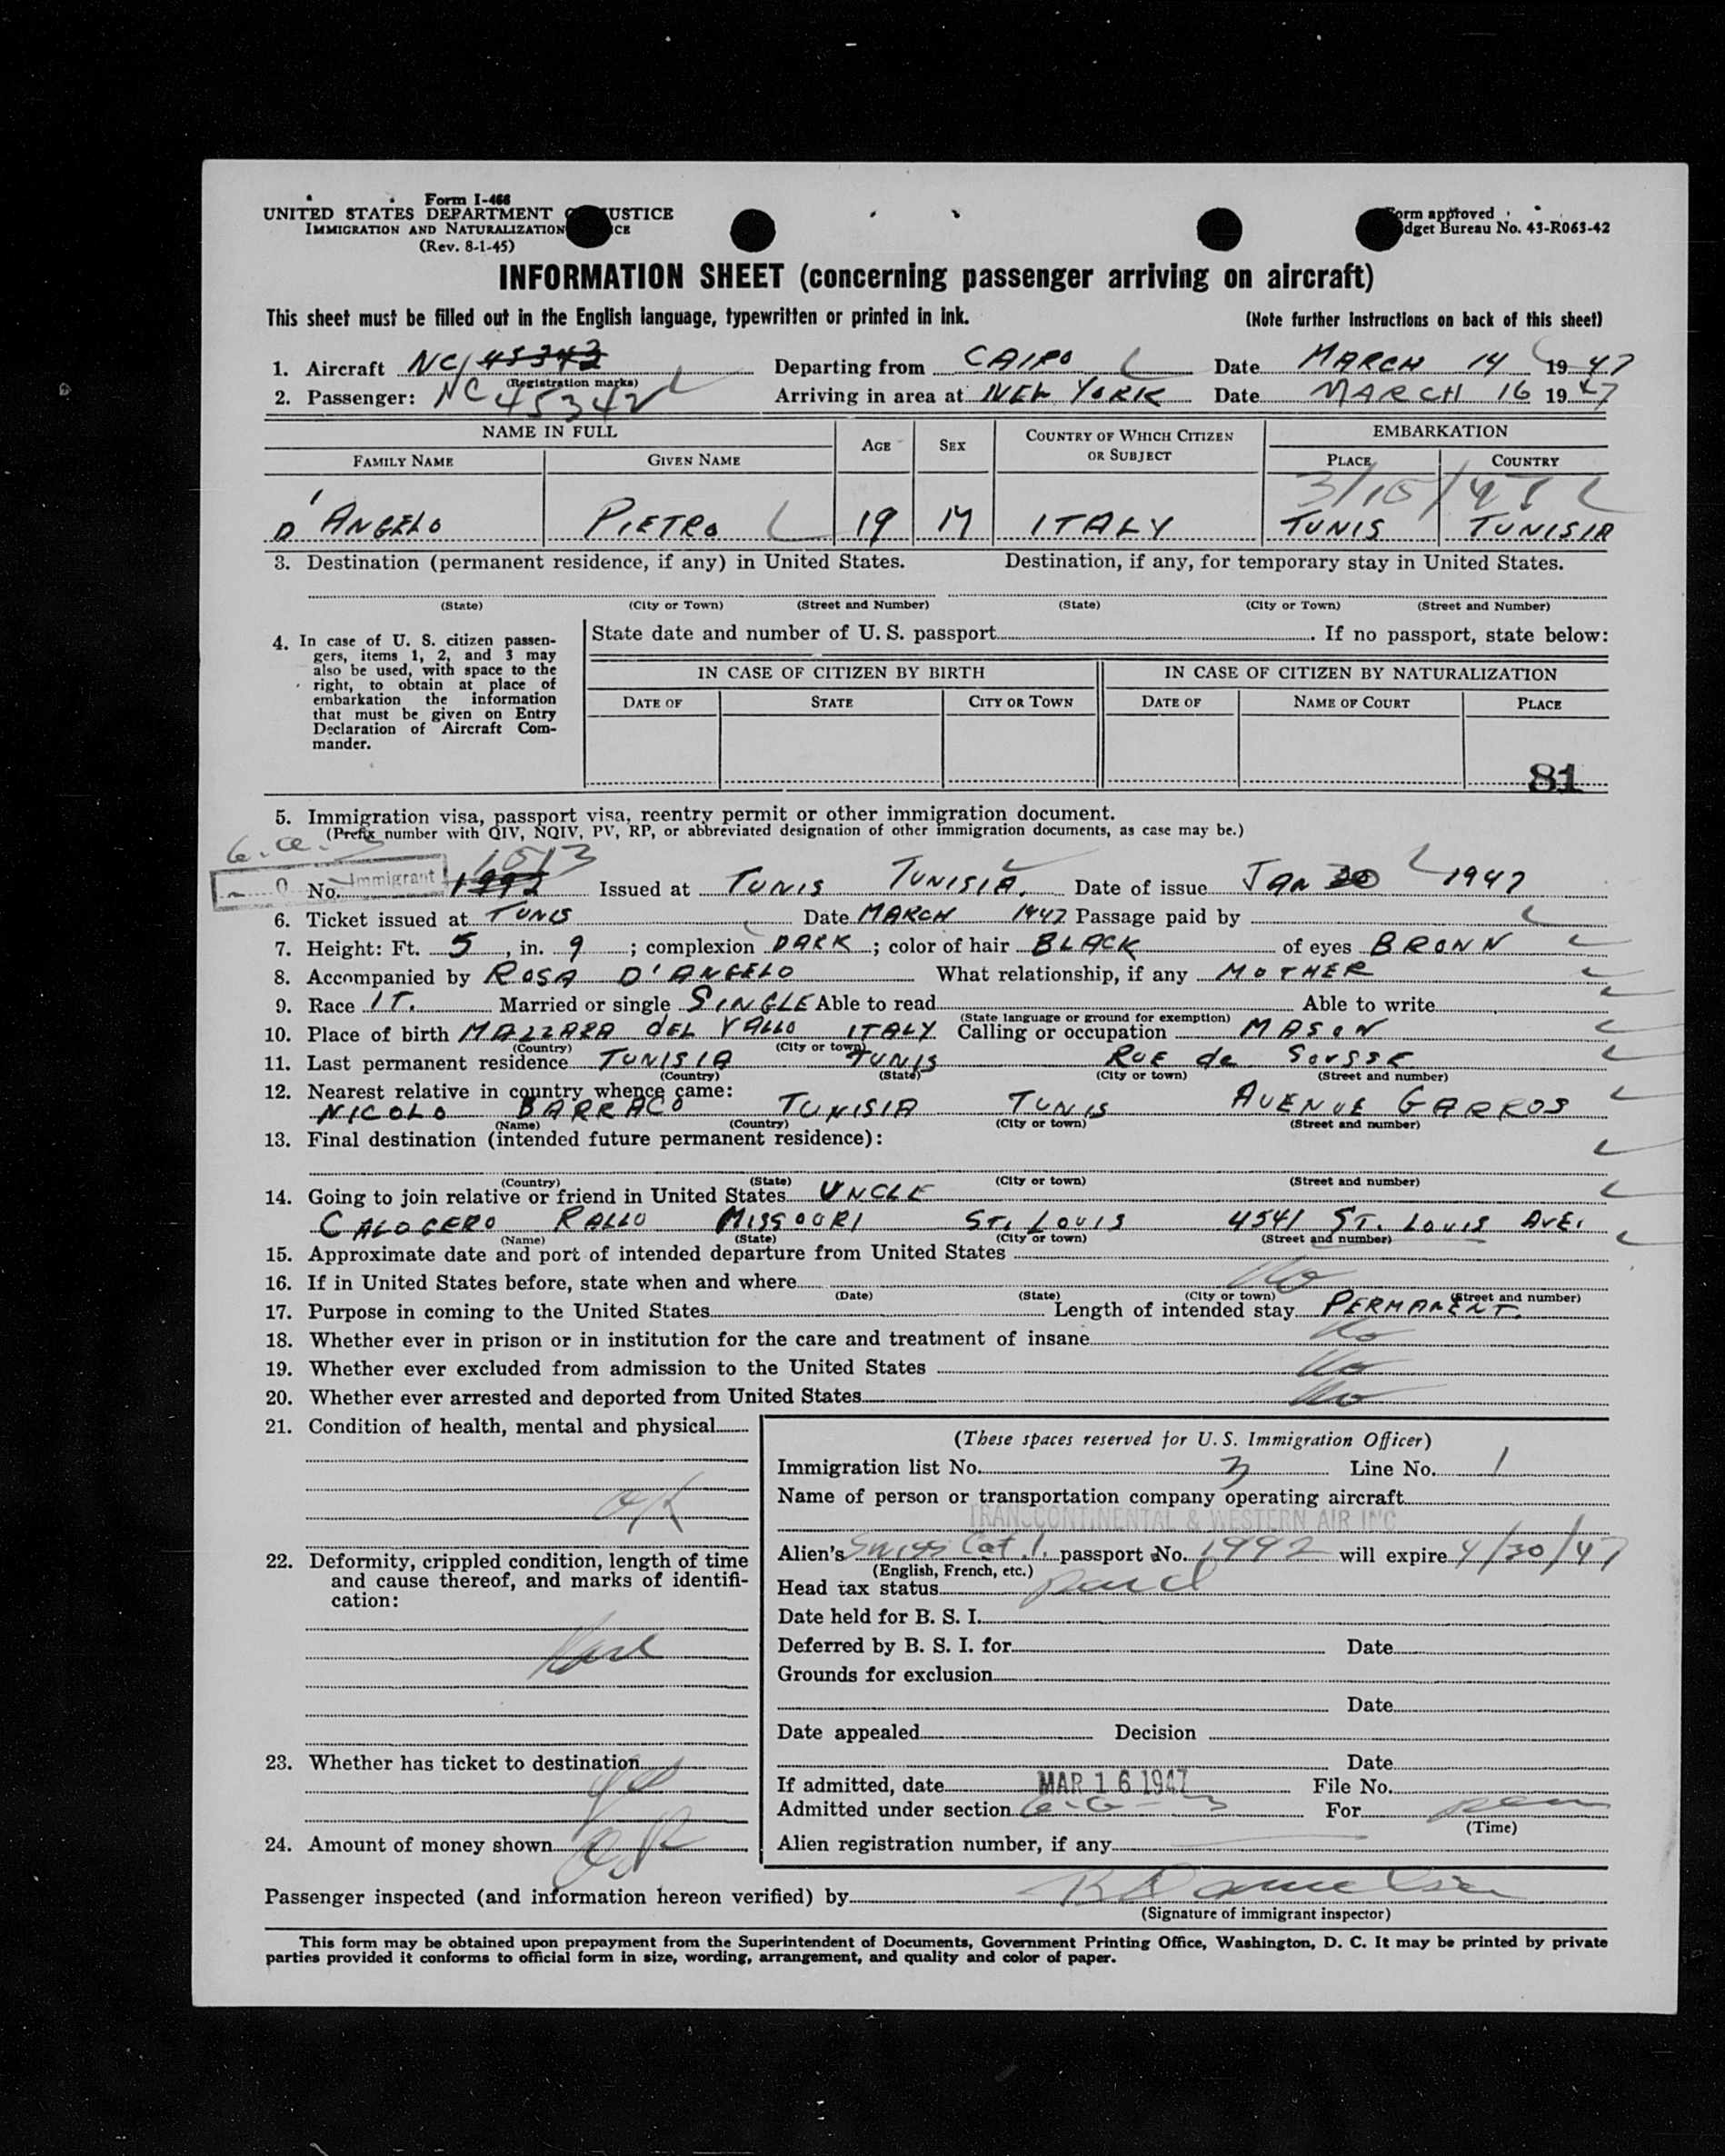 Form I-466
UNITED STATES DEPARTMENT JUSTICE
IMMIGRATION AND NATURALIZATION
(Rev. 8-1-45)
Form approved
Budget Bureau No. 43-R063-42
INFORMATION SHEET (concerning passenger arriving on aircraft)
This sheet must be filled out in the English language, typewritten or printed in ink. (Note further instructions on back of this sheet)
1. Aircraft NC/45343 Departing from CAIRO Date MARCH 14 1947
(Registration marks)
2. Passenger: NC 45342 Arriving in area at NEW YORK Date MARCH 16 1947
NAME IN FULL AGE SEX COUNTRY OF WHICH CITIZEN OR SUBJECT EMBARKATION
FAMILY NAME GIVEN NAME PLACE COUNTRY
3/15/47
D'ANGELO PIETRO 19 M ITALY TUNIS TUNISIA
3. Destination (permanent residence, if any) in United States. Destination, if any, for temporary stay in United States.
(State) (City or Town) (Street and Number) (State) (City or Town) (Street and Number)
4. In case of U. S. citizen passen-
gers, items 1, 2, and 3 may
also be used, with space to the
right, to obtain at place of
embarkation the information
that must be given on Entry
Declaration of Aircraft Com-
mander.
State date and number of U. S. passport. If no passport, state below:
IN CASE OF CITIZEN BY BIRTH IN CASE OF CITIZEN BY NATURALIZATION
DATE OF STATE CITY OR TOWN DATE OF NAME OF COURT PLACE
81
5. Immigration visa, passport visa, reentry permit or other immigration document.
(Prefix number with QIV, NQIV, PV, RP, or abbreviated designation of other immigration documents, as case may be.)
1513
No. Immigrant 1992 Issued at TUNIS TUNISIA. Date of issue JAN 30 1947
6. Ticket issued at TUNIS Date MARCH 1947 Passage paid by
7. Height: Ft. 5, in. 9; complexion DARK; color of hair BLACK of eyes BROWN
8. Accompanied by ROSA D'ANGELO What relationship, if any MOTHER
9. Race IT. Married or single SINGLE Able to read Able to write
(State language or ground for exemption)
10. Place of birth MAZZARA DEL VALLO ITALY Calling or occupation MASON
(Country) (City or town)
11. Last permanent residence TUNISIA TUNIS RUE de SOUSSE
(Country) (State) (City or town) (Street and number)
12. Nearest relative in country whence came:
NICOLO BARRACO TUNISIA TUNIS AVENUE GARROS
(Name) (Country) (City or town) (Street and number)
13. Final destination (intended future permanent residence):
(Country) (State) (City or town) (Street and number)
14. Going to join relative or friend in United States UNCLE
CALOGERO RALLO MISSOURI ST. LOUIS 4541 ST. LOUIS AVE.
(Name) (State) (City or town) (Street and number)
15. Approximate date and port of intended departure from United States
16. If in United States before, state when and where No
(Date) (State) (City or town) (Street and number)
17. Purpose in coming to the United States Length of intended stay PERMANENT.
18. Whether ever in prison or in institution for the care and treatment of insane No
19. Whether ever excluded from admission to the United States No
20. Whether ever arrested and deported from United States No
21. Condition of health, mental and physical
OK
22. Deformity, crippled condition, length of time
and cause thereof, and marks of identifi-
cation:
None
23. Whether has ticket to destination
Yes
24. Amount of money shown
(These spaces reserved for U. S. Immigration Officer)
Immigration list No. 3 Line No. 1
Name of person or transportation company operating aircraft
TRANSCONTINENTAL & WESTERN AIR INC
Alien's Swiss passport No. 1992 will expire 4/30/47
(English, French, etc.)
Head tax status paid
Date held for B. S. I.
Deferred by B. S. I. for Date
Grounds for exclusion
Date
Date appealed Decision
Date
If admitted, date MAR 16 1947 File No.
Admitted under section For perm
(Time)
Alien registration number, if any
Passenger inspected (and information hereon verified) by
(Signature of immigrant inspector)
This form may be obtained upon prepayment from the Superintendent of Documents, Government Printing Office, Washington, D. C. It may be printed by private
parties provided it conforms to official form in size, wording, arrangement, and quality and color of paper.